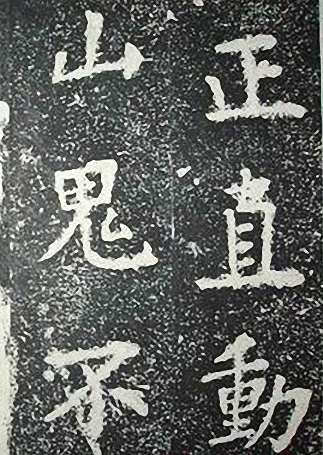 正直動
山鬼不